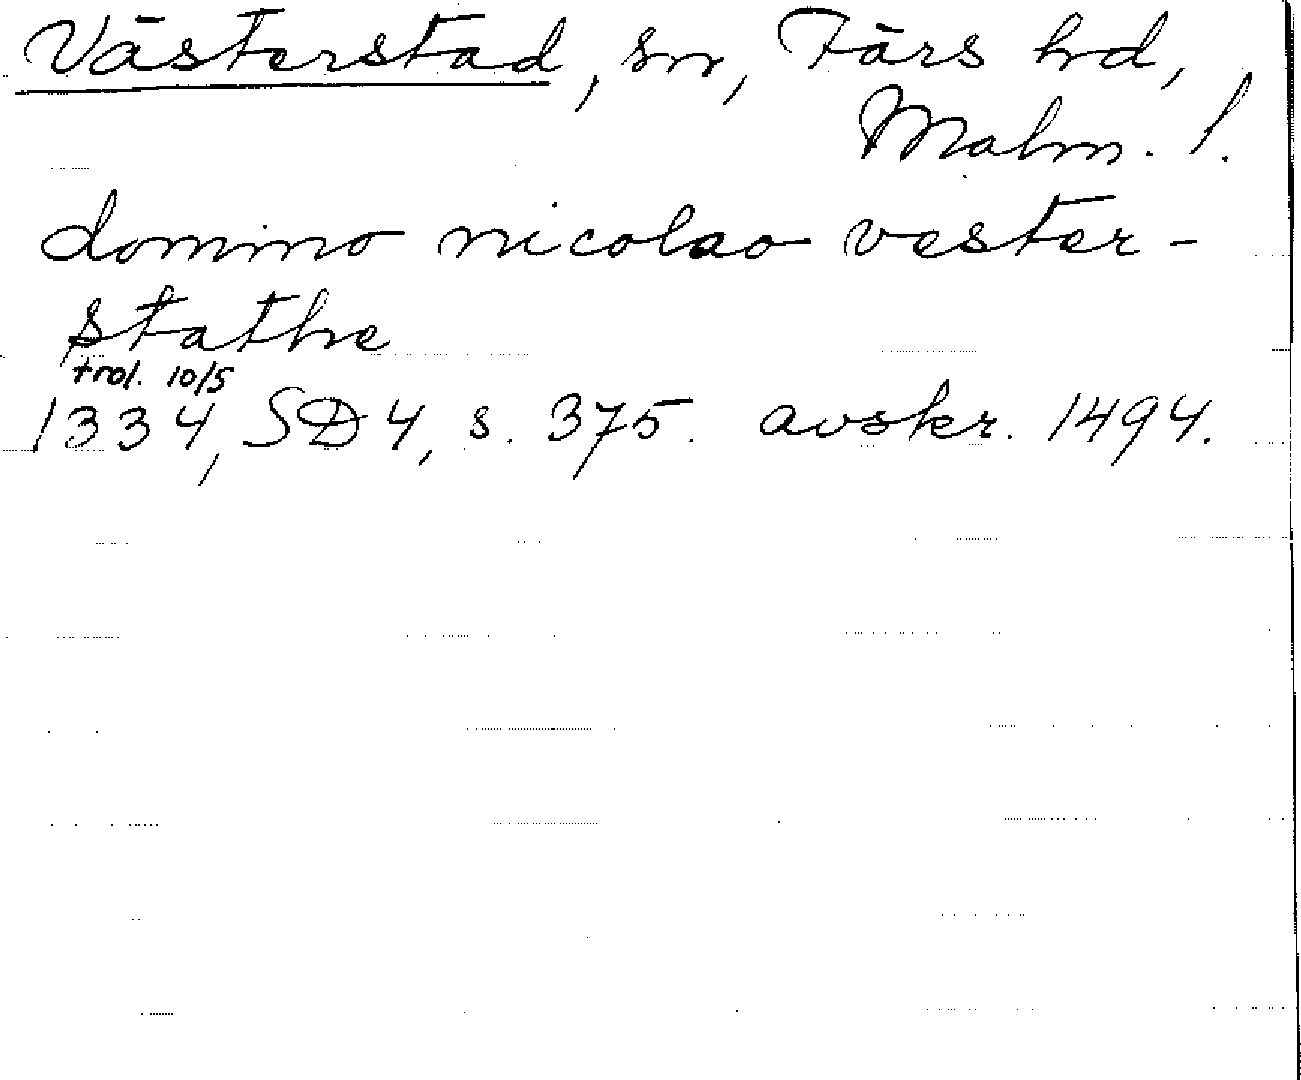 Västerstad, sn, Färs hd,
Malm. l.
domino nicolao vester-
stathe
trol. 10/5
1334, SD 4, s. 375. avskr. 1494.